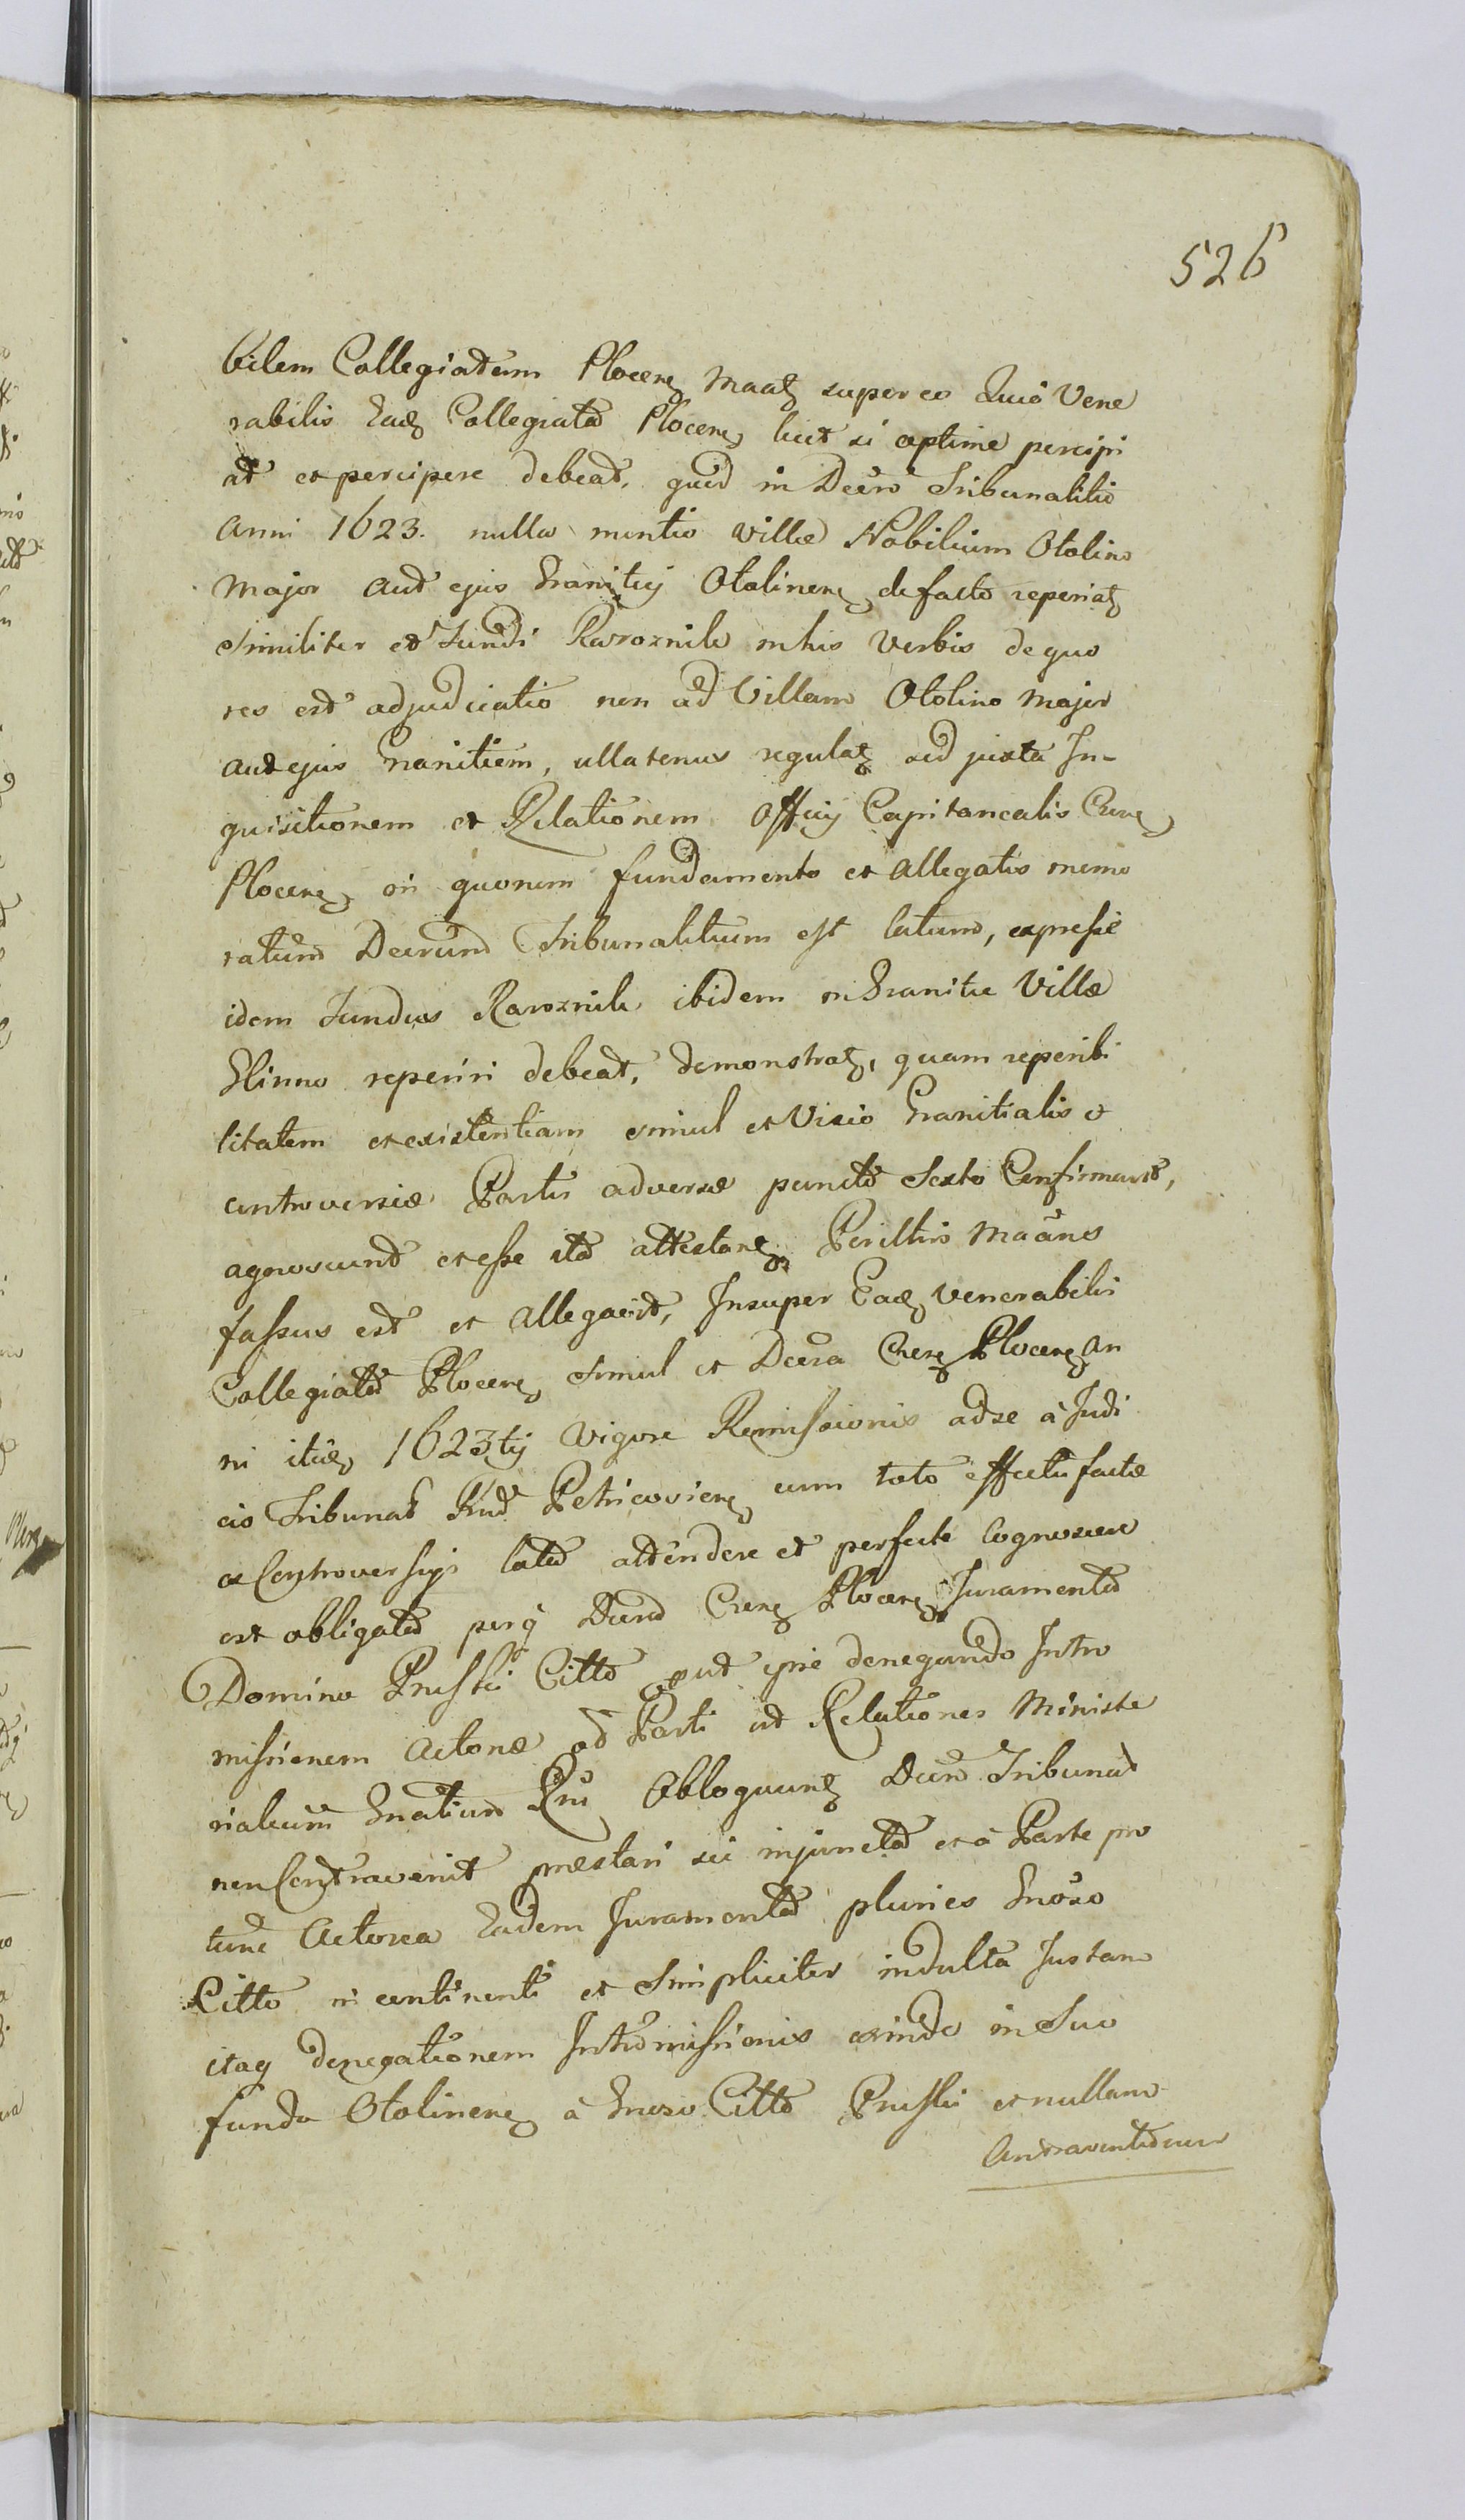 526
bilem Collegiatam Plocens maat super eo Quia Vene
rabilis Ead Collegiata Plocens licet si optime percipi
at et percipere debeat, quod in Decro Tribunalitio
Anni 1623. nulla mentio Villae Nobilium Otolino
Major aut ejus Granitiej Otolinens, de facto reperiat
similiter et Fundi Raroznik in his Verbis de quo
res est adjudicatio non ad Villam Otolino Major
aut ejus Granitiem, ullatenus regulat sed juxta In-
quisitionem et Relationem Officij Capitanealis Crens
Plocens, in quorum fundamento et allegatis memo
ratum Decrum Tribunalitium est latum, expresse
idem Fundus Raroznik ibidem in Granitie Villae
Glinno reperiri debeat, demonstrat, quam reperibi
litatem et existentiam simul et Visio Granitialis et
controversiae Partis adversae puncto Sexto Confirmavit,
agnoscunt et esse ita attestant, Perilltris Maans
fassus est et allegavit, Insuper Ead venerabilis
Collegiata Plocens simul et Decra Crens Plocens an
ni ittid 1623tij vigore Remissionis ad se à Judi
cio Tribunal Rnd Petricoviens cum toto effectu factae
ex Controversijs lata attendere et perfecte cognoscere
est obligata perq Decrd Crens Plocens Juramenta
Domino Pruski Citto aut ipse denegando Intro
missionem Actorae ad Parti ad Relationes Ministe
rialium Gnalium Rni Obloquunt Decro Tribunal
non Contravenit praestari sei injuncta et à Parte pro
tunc Actorea Eadem Juramenta pluries Gnoso
Citto in continenti et Simpliciter indulta Justam
itaq denegationem Intromissionis exinde in Suo
fundo Otolinens à Gnoso Citto Pruski et nullam